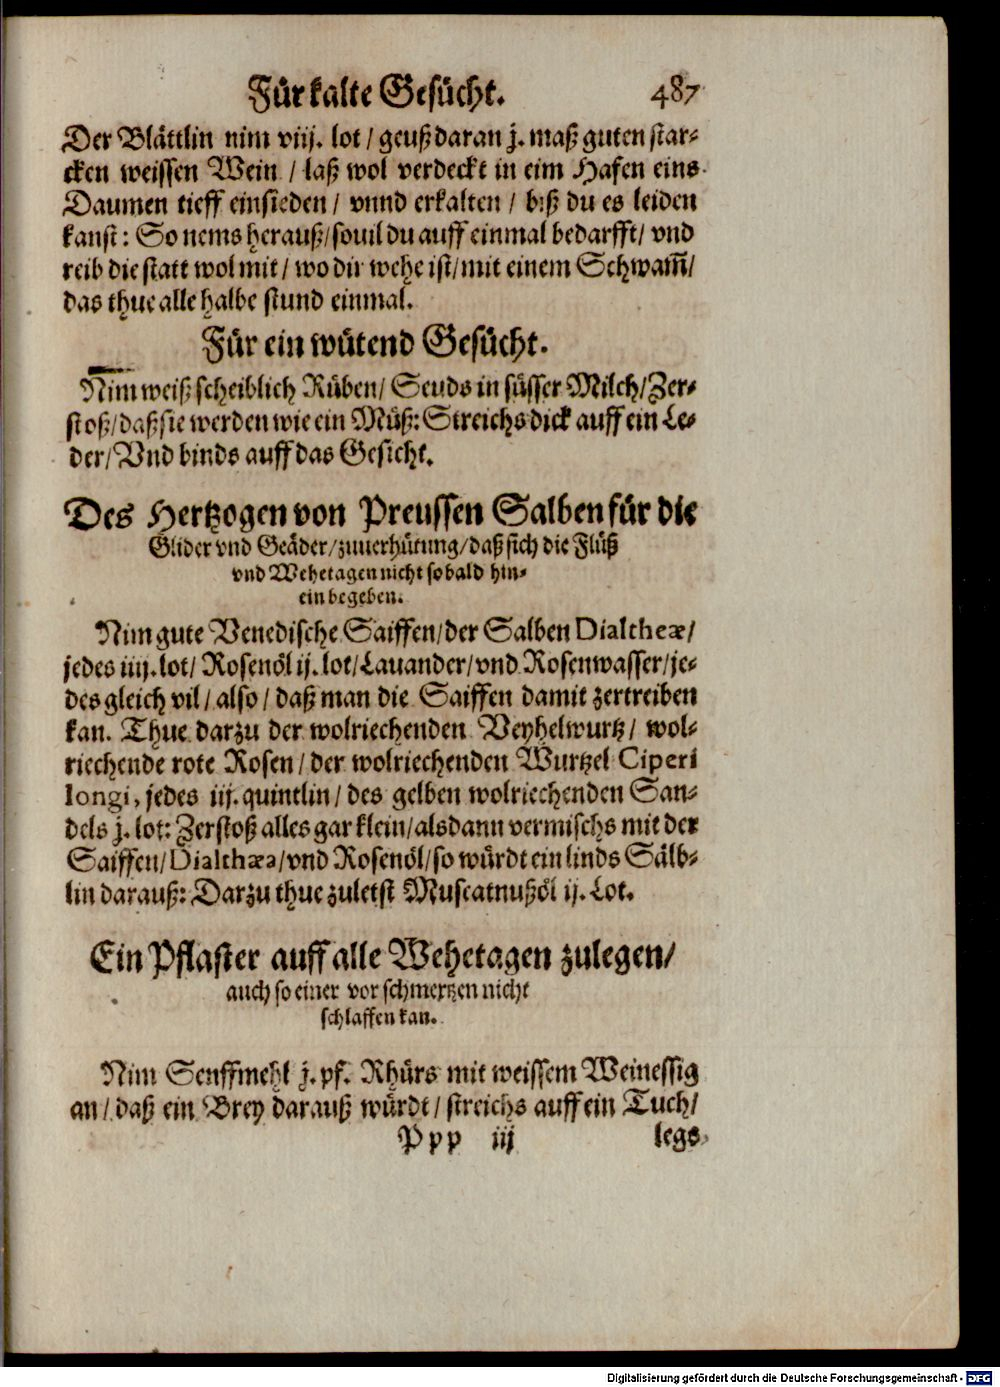 Für kalte Gesücht. 487
Der Blättlin nim viij. lot / geuß daran j. maß guten star⸗
cken weissen Wein / laß wol verdeckt in eim Hafen eins
Daumen tieff einsieden / vnnd erkalten / biß du es leiden
kanst: So nems herauß / souil du auff einmal bedarfft / vnd
reib die statt wol mit / wo dir wehe ist / mit einem Schwam̅ /
das thue alle halbe stund einmal.
Für ein wütend Gesücht.
Nim weiß scheiblich Rüben / Seuds in süsser Milch / Zer⸗
stoß / daß sie werden wie ein Müß: Streichs dick auff ein Le⸗
der / Vnd binds auff das Gesicht.
Des Hertzogen von Preussen Salben für die
Glider vnd Geäder / zuuerhütung / daß sich die Flüß
vnd Wehetagen nicht so bald hin⸗
ein begeben.
Nim gute Venedische Saiffen / der Salben Dialtheæ /
jedes iiij. lot / Rosenöl ij. lot / Lauander / vnd Rosenwasser / je⸗
des gleich vil / also / daß man die Saiffen damit zertreiben
kan. Thue darzu der wolriechenden Veyhelwurtz / wol⸗
riechende rote Rosen / der wolriechenden Wurtzel Ciperi
longi, jedes iij. quintlin / des gelben wolriechenden San⸗
dels j. lot: Zerstoß alles gar klein / alsdann vermischs mit der
Saiffen / Dialthæa / vnd Rosenöl / so würdt ein linds Sälb⸗
lin darauß: Darzu thue zuletst Muscatnußöl ij. Lot.
Ein Pflaster auff alle Wehetagen zulegen /
auch so einer vor schmertzen nicht
schlaffen kan.
Nim Senffmehl j. pf. Rhürs mit weissem Weinessig
an / daß ein Brey darauß würdt / streichs auff ein Tuch /
Ppp iij legs
Digitalisierung gefördert durch die Deutsche Forschungsgemeinschaft - DFG